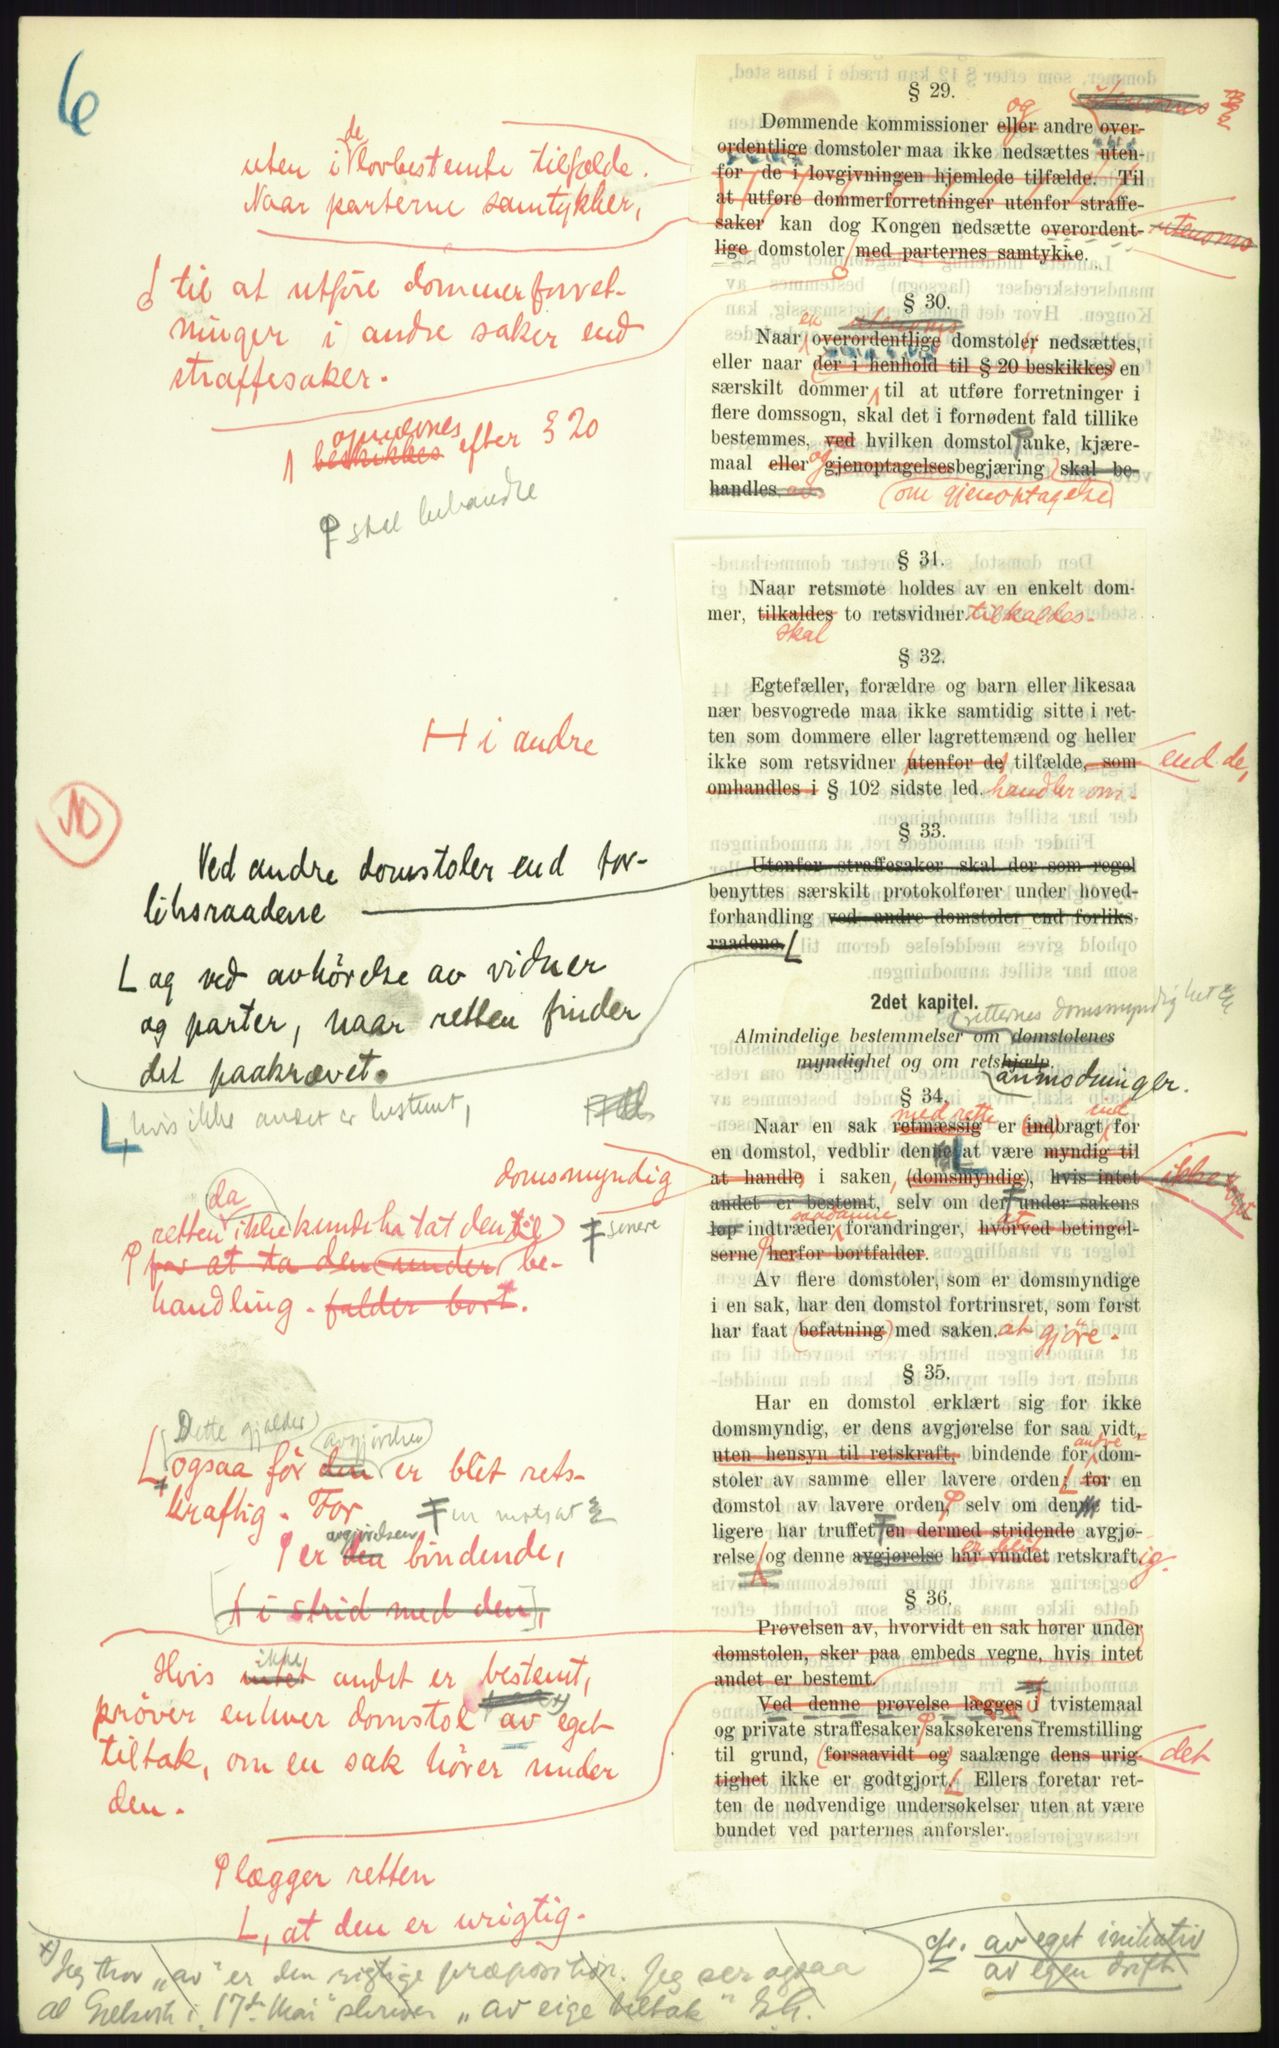 6
§ 29.
Dømmende kommissioner eller andre over-
og
ordentlige domstoler maa ikke nedsættes uten-
for de i lovgivningen hjemlede tilfælde. Til
at utføre dommerforretninger utenfor straffe-
saker kan dog Kongen nedsætte overordent-
utenoms
lige domstoler med parternes samtykke.
uten i de lovbestemte tilfælde.
Naar parterne samtykker,
til at utføre dommerforret-
ninger i andre saker end
straffesaker.
§ 30.
en utenoms
Naar overordentlige domstoler nedsættes,
eller naar der i henhold til § 20 beskikkes en
særskilt dommer til at utføre forretninger i
flere domssogn, skal det i fornødent fald tillike
bestemmes, ved hvilken domstol anke, kjære-
maal eller gjenoptagelsesbegjæring skal be-
og
handles.
om gjenoptagelse
opnævnes
beskikkes efter § 20
skal behandle
§ 31.
Naar retsmøte holdes av en enkelt dom-
mer, tilkaldes to retsvidner. tilkaldes.
skal
§ 32.
Egtefæller, forældre og barn eller likesaa
nær besvogrede maa ikke samtidig sitte i ret-
ten som dommere eller lagrettemænd og heller
ikke som retsvidner utenfor de tilfælde, som
end de,
omhandles i § 102 sidste led. handler om.
i andre
10
§ 33.
Utenfor straffesaker skal der som regel
benyttes særskilt protokolfører under hoved-
forhandling ved andre domstoler end forliks-
raadene.
Ved andre domstoler end for-
liksraadene
og ved avhörelse av vidner
og parter, naar retten finder
det paakrævet.
2det kapitel.
retternes domsmyndighet
Almindelige bestemmelser om domstolenes
myndighet og om retshjælp.
anmodninger.
§ 34.
med rette
ind
Naar en sak retmæssig er indbragt for
en domstol, vedblir denne at være myndig til
at handle i saken (domsmyndig), hvis intet
ikke
andet er bestemt, selv om der under sakens
saadanne
løp indtræder forandringer, hvorved betingel-
serne herfor bortfalder.
Av flere domstoler, som er domsmyndige
i en sak, har den domstol fortrinsret, som først
har faat befatning med saken. at gjöre.
hvis ikke andet er bestemt,
domsmyndig
senere
da
retten ikke kunde ha tat den til
for at ta den under be-
handling. falder bort.
§ 35.
Har en domstol erklært sig for ikke
domsmyndig, er dens avgjørelse for saa vidt,
uten hensyn til retskraft, bindende for dom-
andre
stoler av samme eller lavere orden; for en
domstol av lavere orden, selv om denne tid-
ligere har truffet en dermed stridende avgjø-
er blit
relse og denne avgjørelse har vundet retskraftig.
Dette gjælder
avgjørelsen
ogsaa før den er blit rets-
kraftig. For
en motsat
avgjørelsen
er den bindende,
i strid med den,
§ 36.
Prøvelsen av, hvorvidt en sak hører under
domstolen, sker paa embeds vegne, hvis intet
andet er bestemt.
Ved denne prøvelse lægges i tvistemaal
og private straffesaker saksøkerens fremstilling
til grund, forsaavidt og saalænge dens urig-
det
tighet ikke er godtgjort. Ellers foretar ret-
ten de nødvendige undersøkelser uten at være
bundet ved parternes anførsler.
ikke
Hvis intet andet er bestemt,
prøver enhver domstol av eget
tiltak, om en sak hører under
den.
lægger retten
, at den er urigtig.
x) Jeg tror „av" er den rigtige præposition. Jeg ser ogsaa
i „17de Mai" skriver „av eige tiltak"
cfr. av eget initiativ
av egen drift